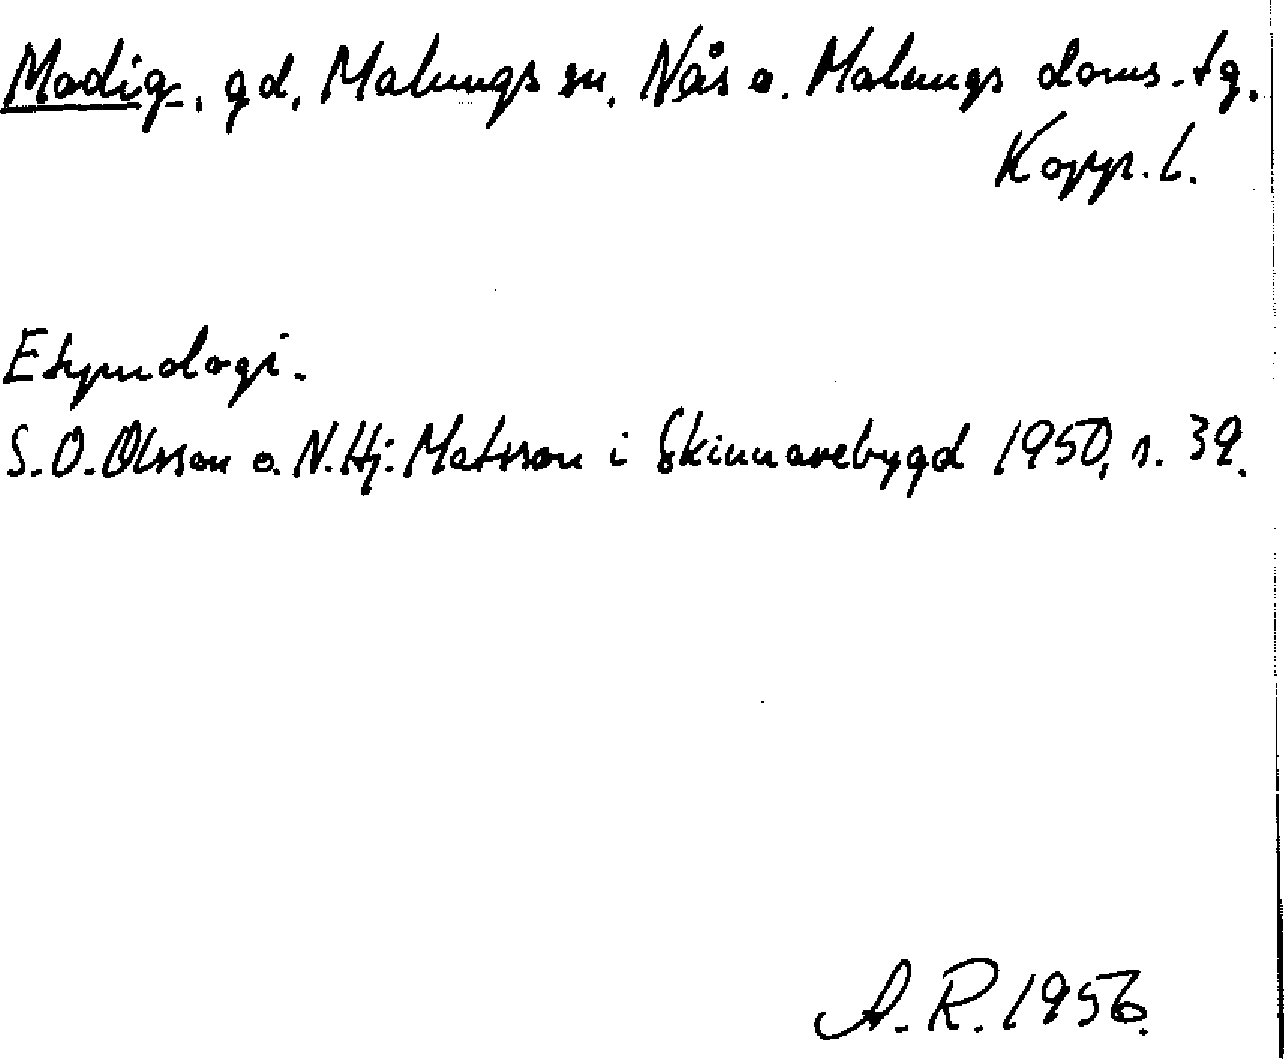 Modig, gd, Malungs sn, Nås o. Malungs doms. tg.
Kopp. l.
Etymologi.
S. O. Olsson o. N. Hj. Matsson i Skinnarebygd 1950, s. 39.
A. R. 1956.